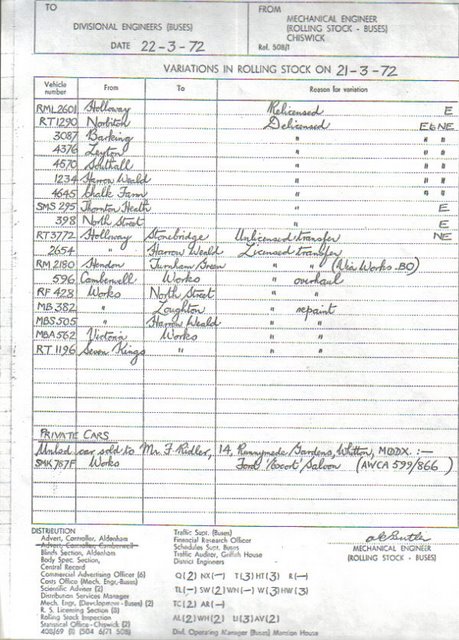 TO
DIVISIONAL ENGINEERS (BUSES)
DATE 22-3-72
FROM
MECHANICAL ENGINEER
(ROLLING STOCK - BUSES)
CHISWICK
Ref. 508/1
VARIATIONS IN ROLLING STOCK ON 21-3-72
Vehicle number From To Reason for variation
RML2601 Holloway Relicensed E
RT1290 Norbiton Delicensed E6 NE
3087 Barking " " "
4376 Leyton " " "
4570 Southall " " "
1234 Harrow Weald " " "
4645 Chalk Farm " " "
SMS 295 Thornton Heath " E
398 North Street " E
RT3772 Holloway Stonebridge Unlicensed transfer NE
2654 " Harrow Weald Licensed transfer
RM 2180 Hendon Turnham Green " " (Via Works. BO)
596 Camberwell Works " overhaul
RF 428 Works North Street " "
MB 382 " Loughton " repaint
MBS 505 " Harrow Weald " "
MBA 562 Victoria Works " "
RT 1196 Seven Kings " " "
PRIVATE CARS
Unlcd car sold to Mr. F Ridler, 14, Runnymede Gardens, Whitton, MDDX. :—
SMK 767F Works Ford 'Escort' Saloon (AWCA 599/866)
DISTRIBUTION
Advert. Controller, Aldenham
Advert. Controller, Camberwell
Blinds Section, Aldenham
Body Spec. Section,
Central Record
Commercial Advertising Officer (6)
Costs Office (Mech. Engr.-Buses)
Scientific Adviser (2)
Distribution Services Manager
Mech. Engr. (Development - Buses) (2)
R. S. Licensing Section (3)
Rolling Stock Inspection
Statistical Office - Chiswick (2)
408/69 (1) (504 6/71 508)
Traffic Supt. (Buses)
Financial Research Officer
Schedules Supt. Buses
Traffic Auditor, Griffith House
District Engineers
Q(2) NX(—) T(3) HT(3) R(—)
TL(—) SW(2) WN(—) W(3) HW(3)
TC(2) AR(—)
AL(2) WH(2) LI(3) AV(2)
Divl. Operating Manager (Buses) Mansion House
MECHANICAL ENGINEER
(ROLLING STOCK - BUSES)